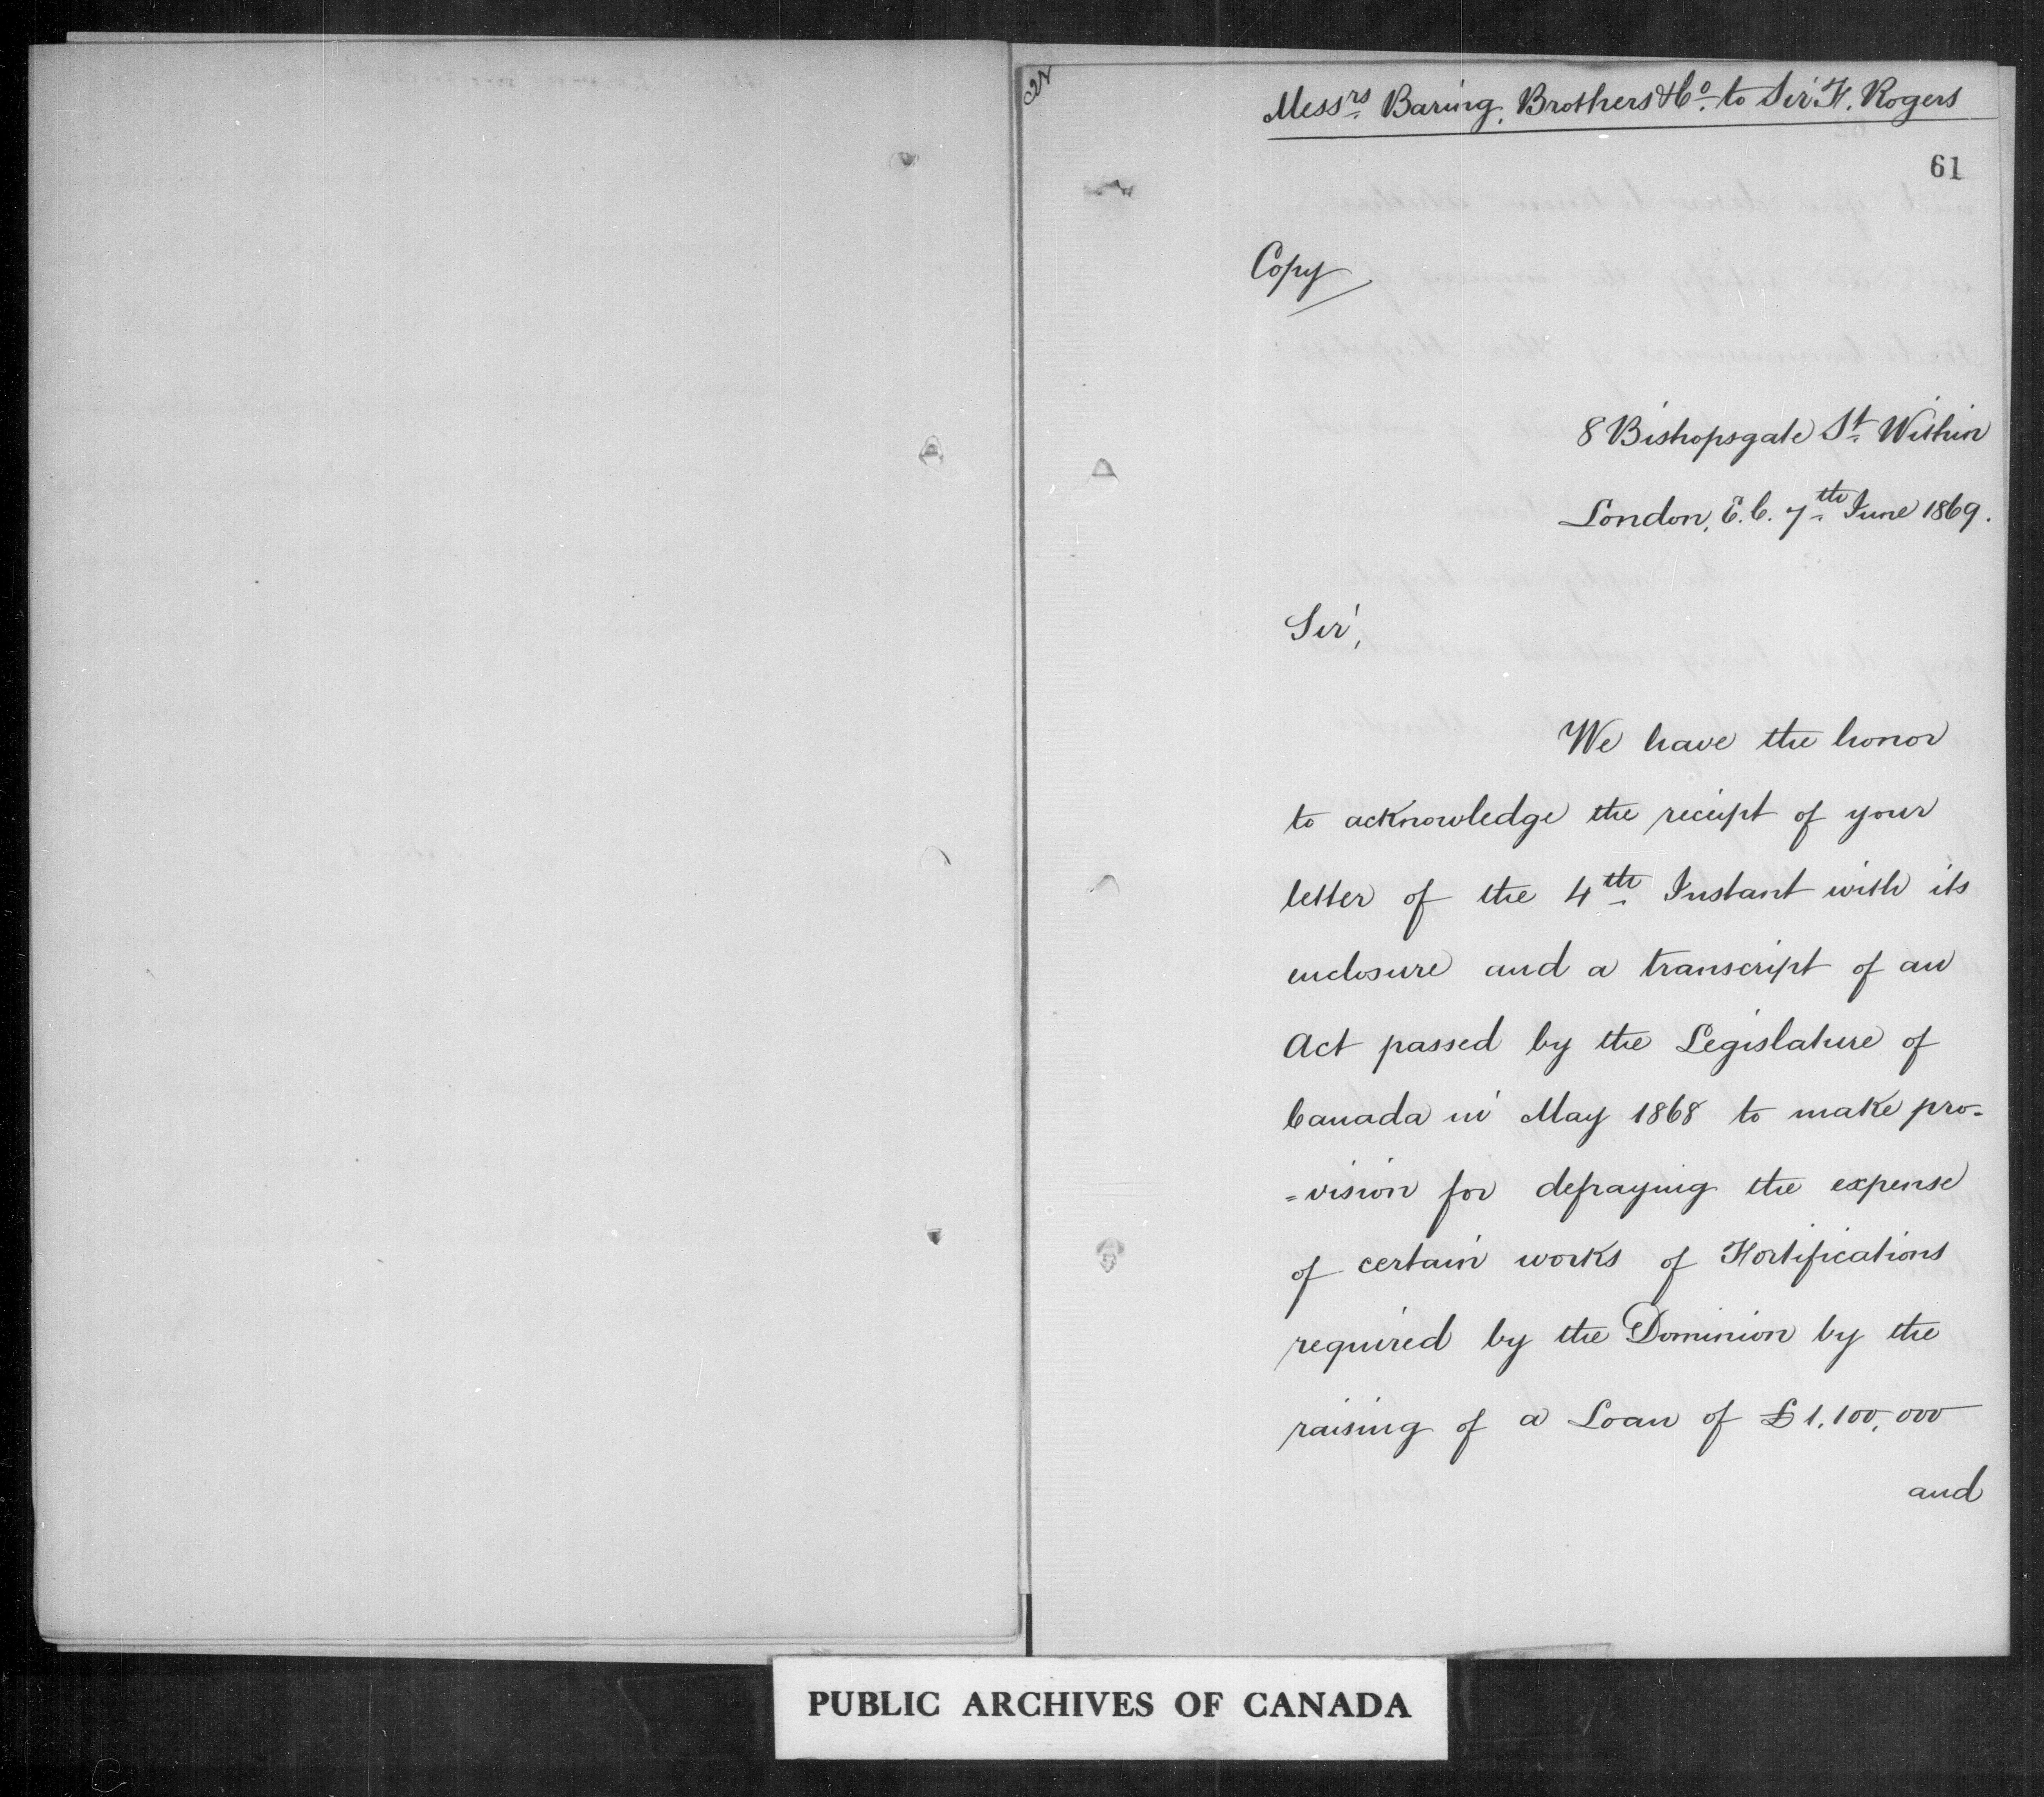 Messrs Baring, Brothers & Co. to Sir F. Rogers
61
Copy
8 Bishopsgate St. Within
London, E.C. 7th June 1869.
Sir,
We have the honor
to acknowledge the receipt of your
letter of the 4th Instant with its
enclosure and a transcript of an
Act passed by the Legislature of
Canada in May 1868 to make pro-
=vision for defraying the expense
of certain works of Fortifications
required by the Dominion by the
raising of a Loan of £1,100,000
and
PUBLIC ARCHIVES OF CANADA